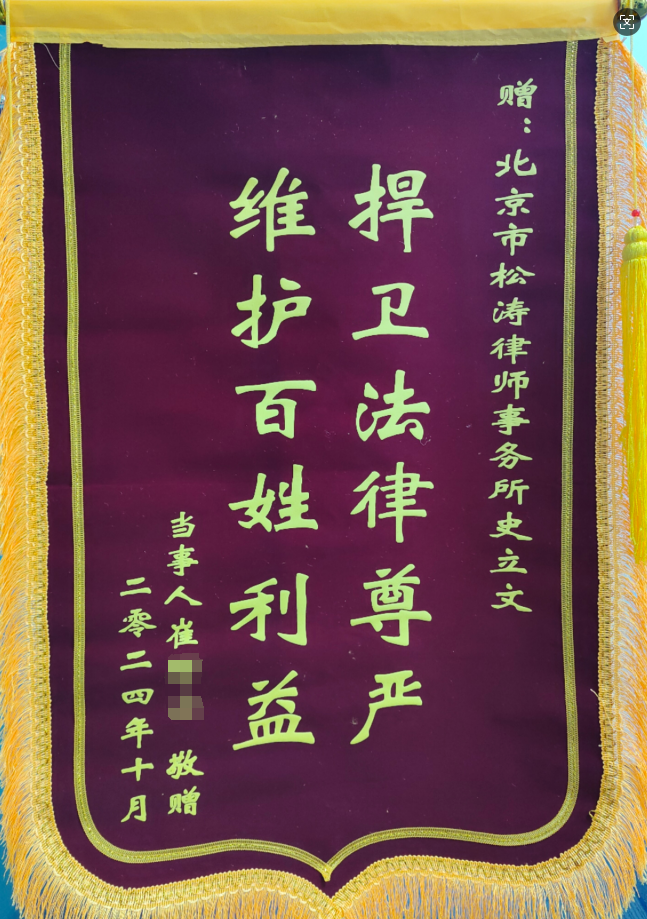 赠：北京市松涛律师事务所史立文
捍卫法律尊严
维护百姓利益
当事人崔 敬赠
二零二四年十月